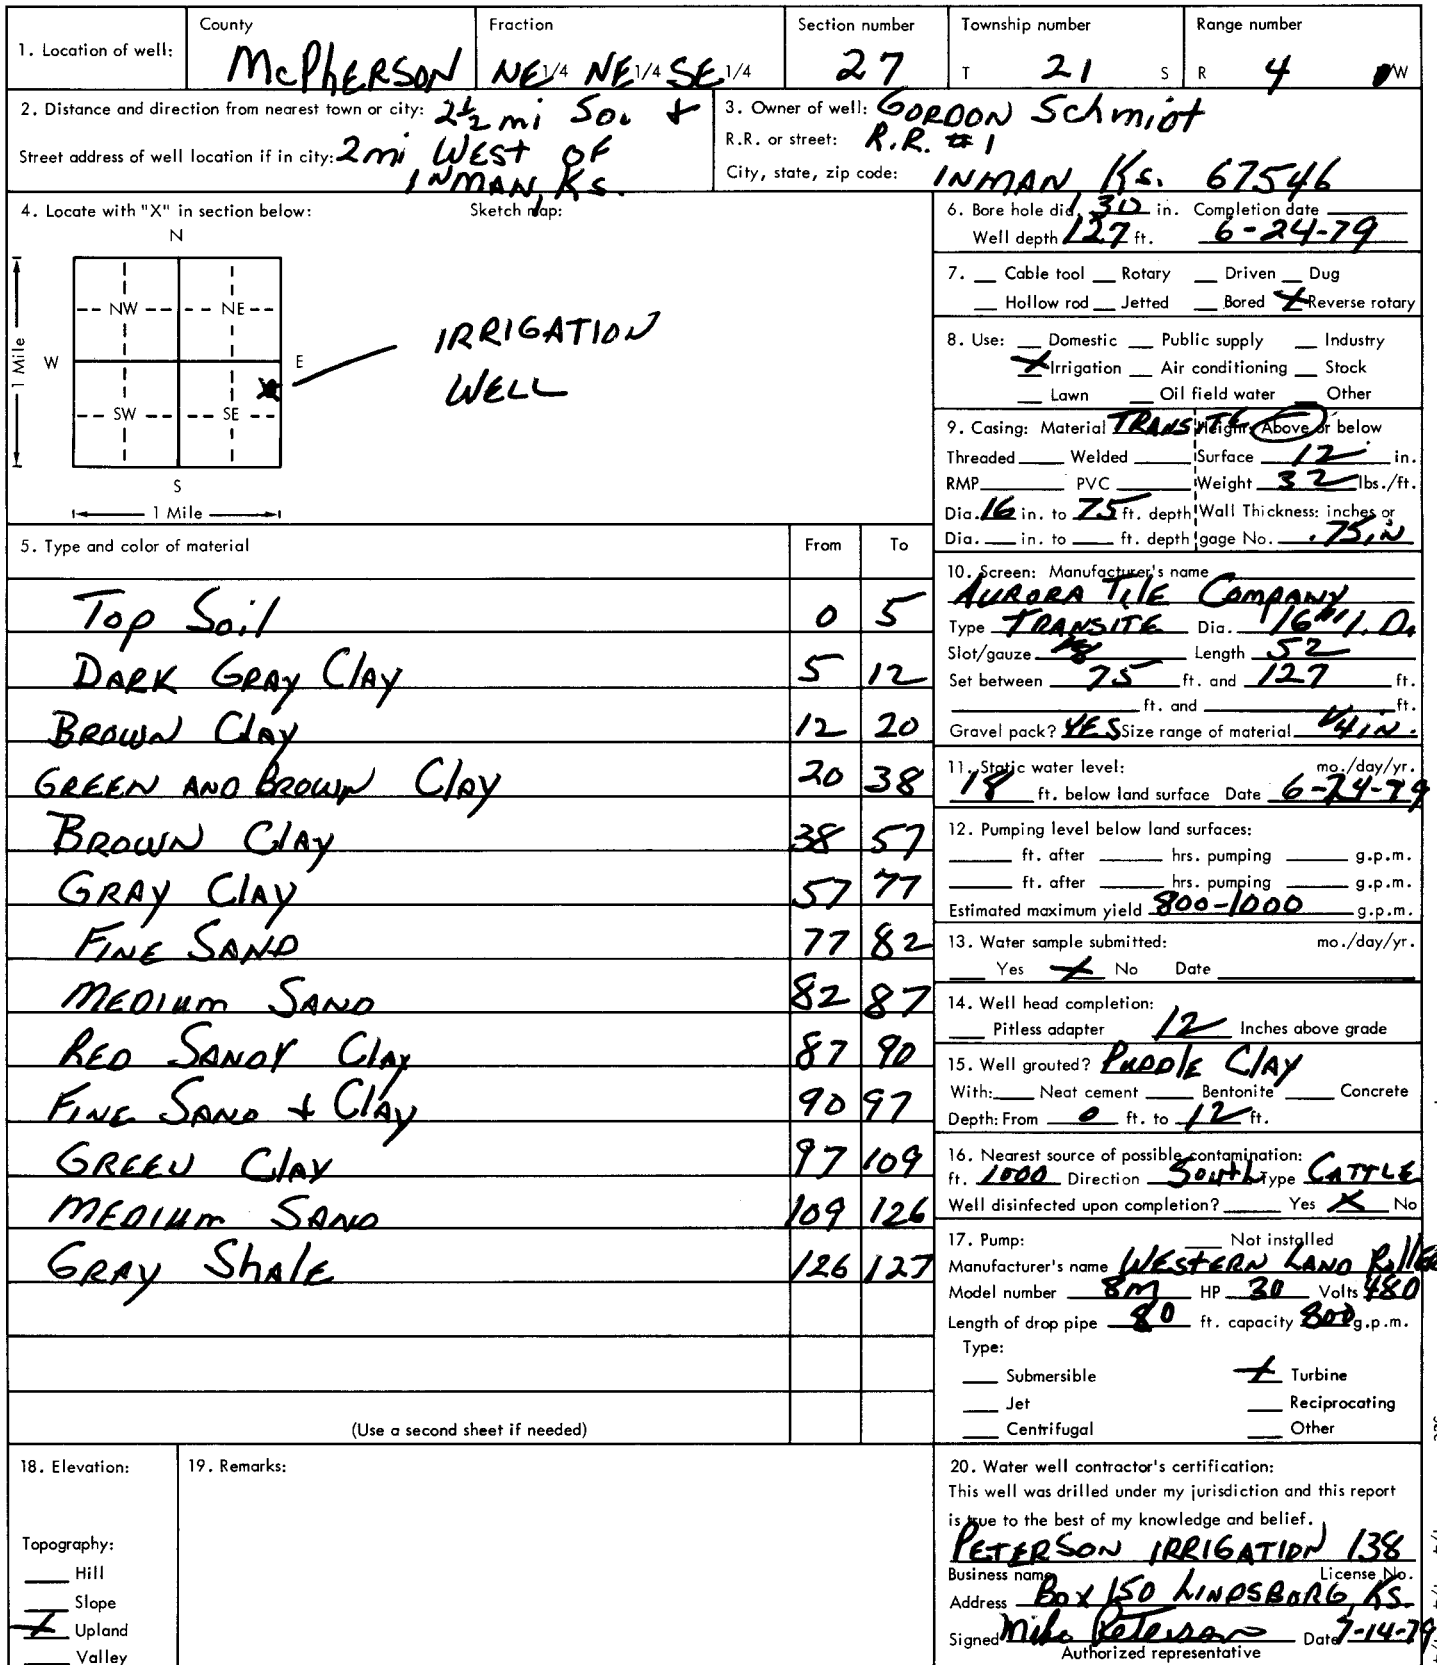 1. Location of well: County McPHERSON Fraction NE 1/4 NE 1/4 SE 1/4 Section number 27 Township number T 21 S Range number R 4 W
2. Distance and direction from nearest town or city: 2½ mi Sou +
Street address of well location if in city: 2 mi WEST OF
INMAN, Ks.
3. Owner of well: GORDON Schmidt
R.R. or street: R.R. #1
City, state, zip code: INMAN Ks. 67546
4. Locate with "X" in section below: Sketch map:
N
NW NE
W E
SW SE
S
1 Mile
1 Mile
IRRIGATION
WELL
6. Bore hole dia. 30 in. Completion date
Well depth 127 ft. 6-24-79
7. Cable tool Rotary Driven Dug
Hollow rod Jetted Bored X Reverse rotary
8. Use: Domestic Public supply Industry
X Irrigation Air conditioning Stock
Lawn Oil field water Other
9. Casing: Material TRANSITE Height: Above or below
Threaded Welded Surface 12 in.
RMP PVC Weight 32 lbs./ft.
Dia. 16 in. to 75 ft. depth Wall Thickness: inches or
Dia. in. to ft. depth gage No. .75 IN
5. Type and color of material From To
Top Soil 0 5
DARK GRAY Clay 5 12
BROWN Clay 12 20
GREEN AND BROWN Clay 20 38
BROWN Clay 38 57
GRAY Clay 57 77
FINE SAND 77 82
MEDIUM SAND 82 87
RED SANDY Clay 87 90
FINE SAND + Clay 90 97
GREEN Clay 97 109
MEDIUM SAND 109 126
GRAY Shale 126 127
(Use a second sheet if needed)
10. Screen: Manufacturer's name
AURORA TILE COMPANY
Type TRANSITE Dia. 16" I.D.
Slot/gauze Length 52
Set between 75 ft. and 127 ft.
ft. and ft.
Gravel pack? YES Size range of material 1/4 IN.
11. Static water level: mo./day/yr.
18 ft. below land surface Date 6-24-79
12. Pumping level below land surfaces:
ft. after hrs. pumping g.p.m.
ft. after hrs. pumping g.p.m.
Estimated maximum yield 800-1000 g.p.m.
13. Water sample submitted: mo./day/yr.
Yes X No Date
14. Well head completion:
Pitless adapter 12 Inches above grade
15. Well grouted? PUDDLE CLAY
With: Neat cement Bentonite Concrete
Depth: From 0 ft. to 12 ft.
16. Nearest source of possible contamination:
ft. 1000 Direction South Type CATTLE
Well disinfected upon completion? Yes X No
17. Pump: Not installed
Manufacturer's name WESTERN LAND ROLLER
Model number 8M HP 30 Volts 480
Length of drop pipe 80 ft. capacity 800 g.p.m.
Type:
Submersible X Turbine
Jet Reciprocating
Centrifugal Other
18. Elevation:
Topography:
Hill
Slope
X Upland
Valley
19. Remarks:
20. Water well contractor's certification:
This well was drilled under my jurisdiction and this report
is true to the best of my knowledge and belief.
PETERSON IRRIGATION 138
Business name License No.
Address BOX 150 LINDSBORG, KS.
Signed Mike Peterson Date 7-14-79
Authorized representative